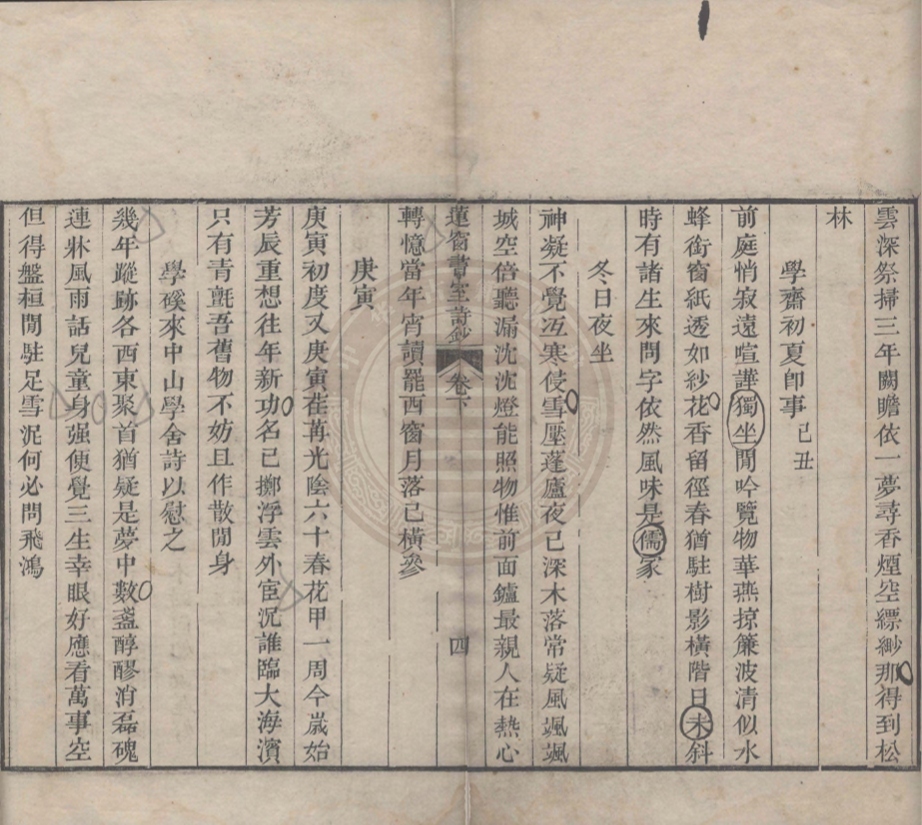 雲深祭掃三年闕瞻依一夢尋香煙空縹緲那得到松
林
學齋初夏卽事己丑
前庭悄寂遠喧譁獨坐閒吟覽物華燕掠簾波淸似水
蜂銜窗紙透如紗花香留徑春猶駐樹影橫階日未斜
時有諸生來問字依然風味是儒家
冬日夜坐
神凝不覺冱寒侵雪壓蓬廬夜已深木落常疑風颯颯
城空倍聽漏沈沈燈能照物惟前面鑪最親人在熱心
蓮窗書室詩鈔 卷下 四
轉憶當年宵讀罷西窗月落已橫參
庚寅
庚寅初度又庚寅荏苒光陰六十春花甲一周今歲始
芳辰重想往年新功名已擲浮雲外宦況誰臨大海濱
只有靑氈吾舊物不妨且作散閒身
學磎來中山學舍詩以慰之
幾年蹤跡各西東聚首猶疑是夢中數盞醇醪消磊磈
連牀風雨話兒童身强便覺三生幸眼好應看萬事空
但得盤桓閒駐足雪泥何必問飛鴻